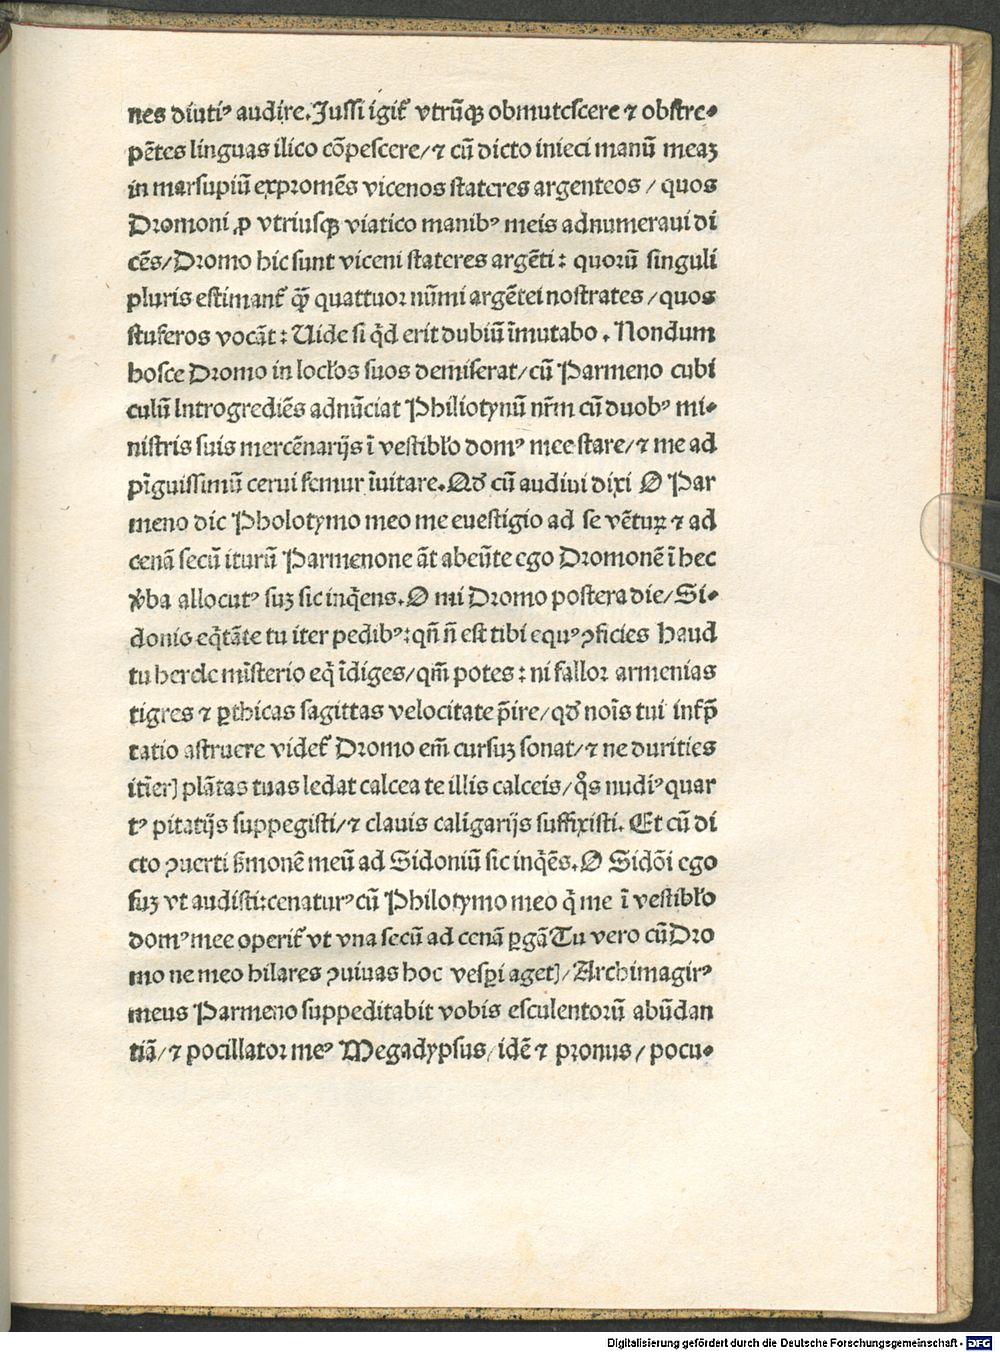 nes diuti⁹ audire. Jussi igit᷑ vtrūq̄ obmutescere ⁊ obstre-
pētes linguas ilico cōpescere/ ⁊ cū dicto inieci manū meaꝫ
in marsupiū expromēs vicenos stateres argenteos / quos
Dromoni ꝓ vtriusq̄ viatico manib⁹ meis adnumeraui di
cēs/ Dromo hic sunt viceni stateres argēti: quorū singuli
pluris estimant᷑ q̄ꝫ quattuor nūmi argētei nostrates / quos
stuferos vocāt: Uide si q̄d erit dubiū īmutabo . Nondum
hosce Dromo in locl̄os suos demiserat/ cū Parmeno cubi
culū Introgrediēs adnūciat Philiotynū nr̄m cū duob⁹ mi-
nistris suis mercēnarijs ī vestibl̄o dom⁹ mee stare/ ⁊ me ad
pīguissimū cerui femur īuitare. Qd̄ cū audiui dixi O Par
meno dic Pholotymo meo me euestigio ad se vētuꝝ ⁊ ad
cenā secū iturū Parmenone āt abeūte ego Dromonē ī hec
v̄ba allocut⁹ suꝫ sic inq̄ens. O mi Dromo postera die/ Si-
donio eq̄tāte tu iter pedib⁹: qn̄ n̄ est tibi equ⁹ ꝯficies haud
tu hercle mīsterio eq̄ īdiges/ qm̄ potes: ni fallor armenias
tigres ⁊ ꝑthicas sagittas velocitate p̄ire/ qd̄ noīs tui inƭp̄
tatio astruere videt᷑ Dromo em̄ cursuꝫ sonat/ ⁊ ne durities
itīeꝝ plātas tuas ledat calcea te illis calceis/ q̊s nudi⁹ quar
t⁹ pitatijs suppegisti/ ⁊ clauis caligarijs suffixisti. Et cū di
cto ꝯuerti s̄monē meū ad Sidoniū sic inq̄ēs. O Sidōi ego
suꝫ vt audisti: cenatur⁹ cū Philotymo meo q̄ me ī vestibl̄o
dom⁹ mee operit᷑ vt vna secū ad cenā ꝑgā Tu vero cū Dro
mo ne meo hilares ꝯuiuas hoc vesꝑi agetꝭ/ Archimagir⁹
meus Parmeno suppeditabit vobis esculentorū abūdan
tiā/ ⁊ pocillator me⁹ Megadypsus/ idē ⁊ pronus/ pocu-
Digitalisierung gefördert durch die Deutsche Forschungsgemeinschaft - DFG